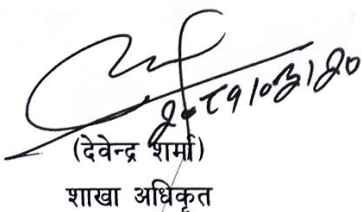 २०८१।०३।२०
(देवेन्द्र शर्मा)
शाखा अधिकृत